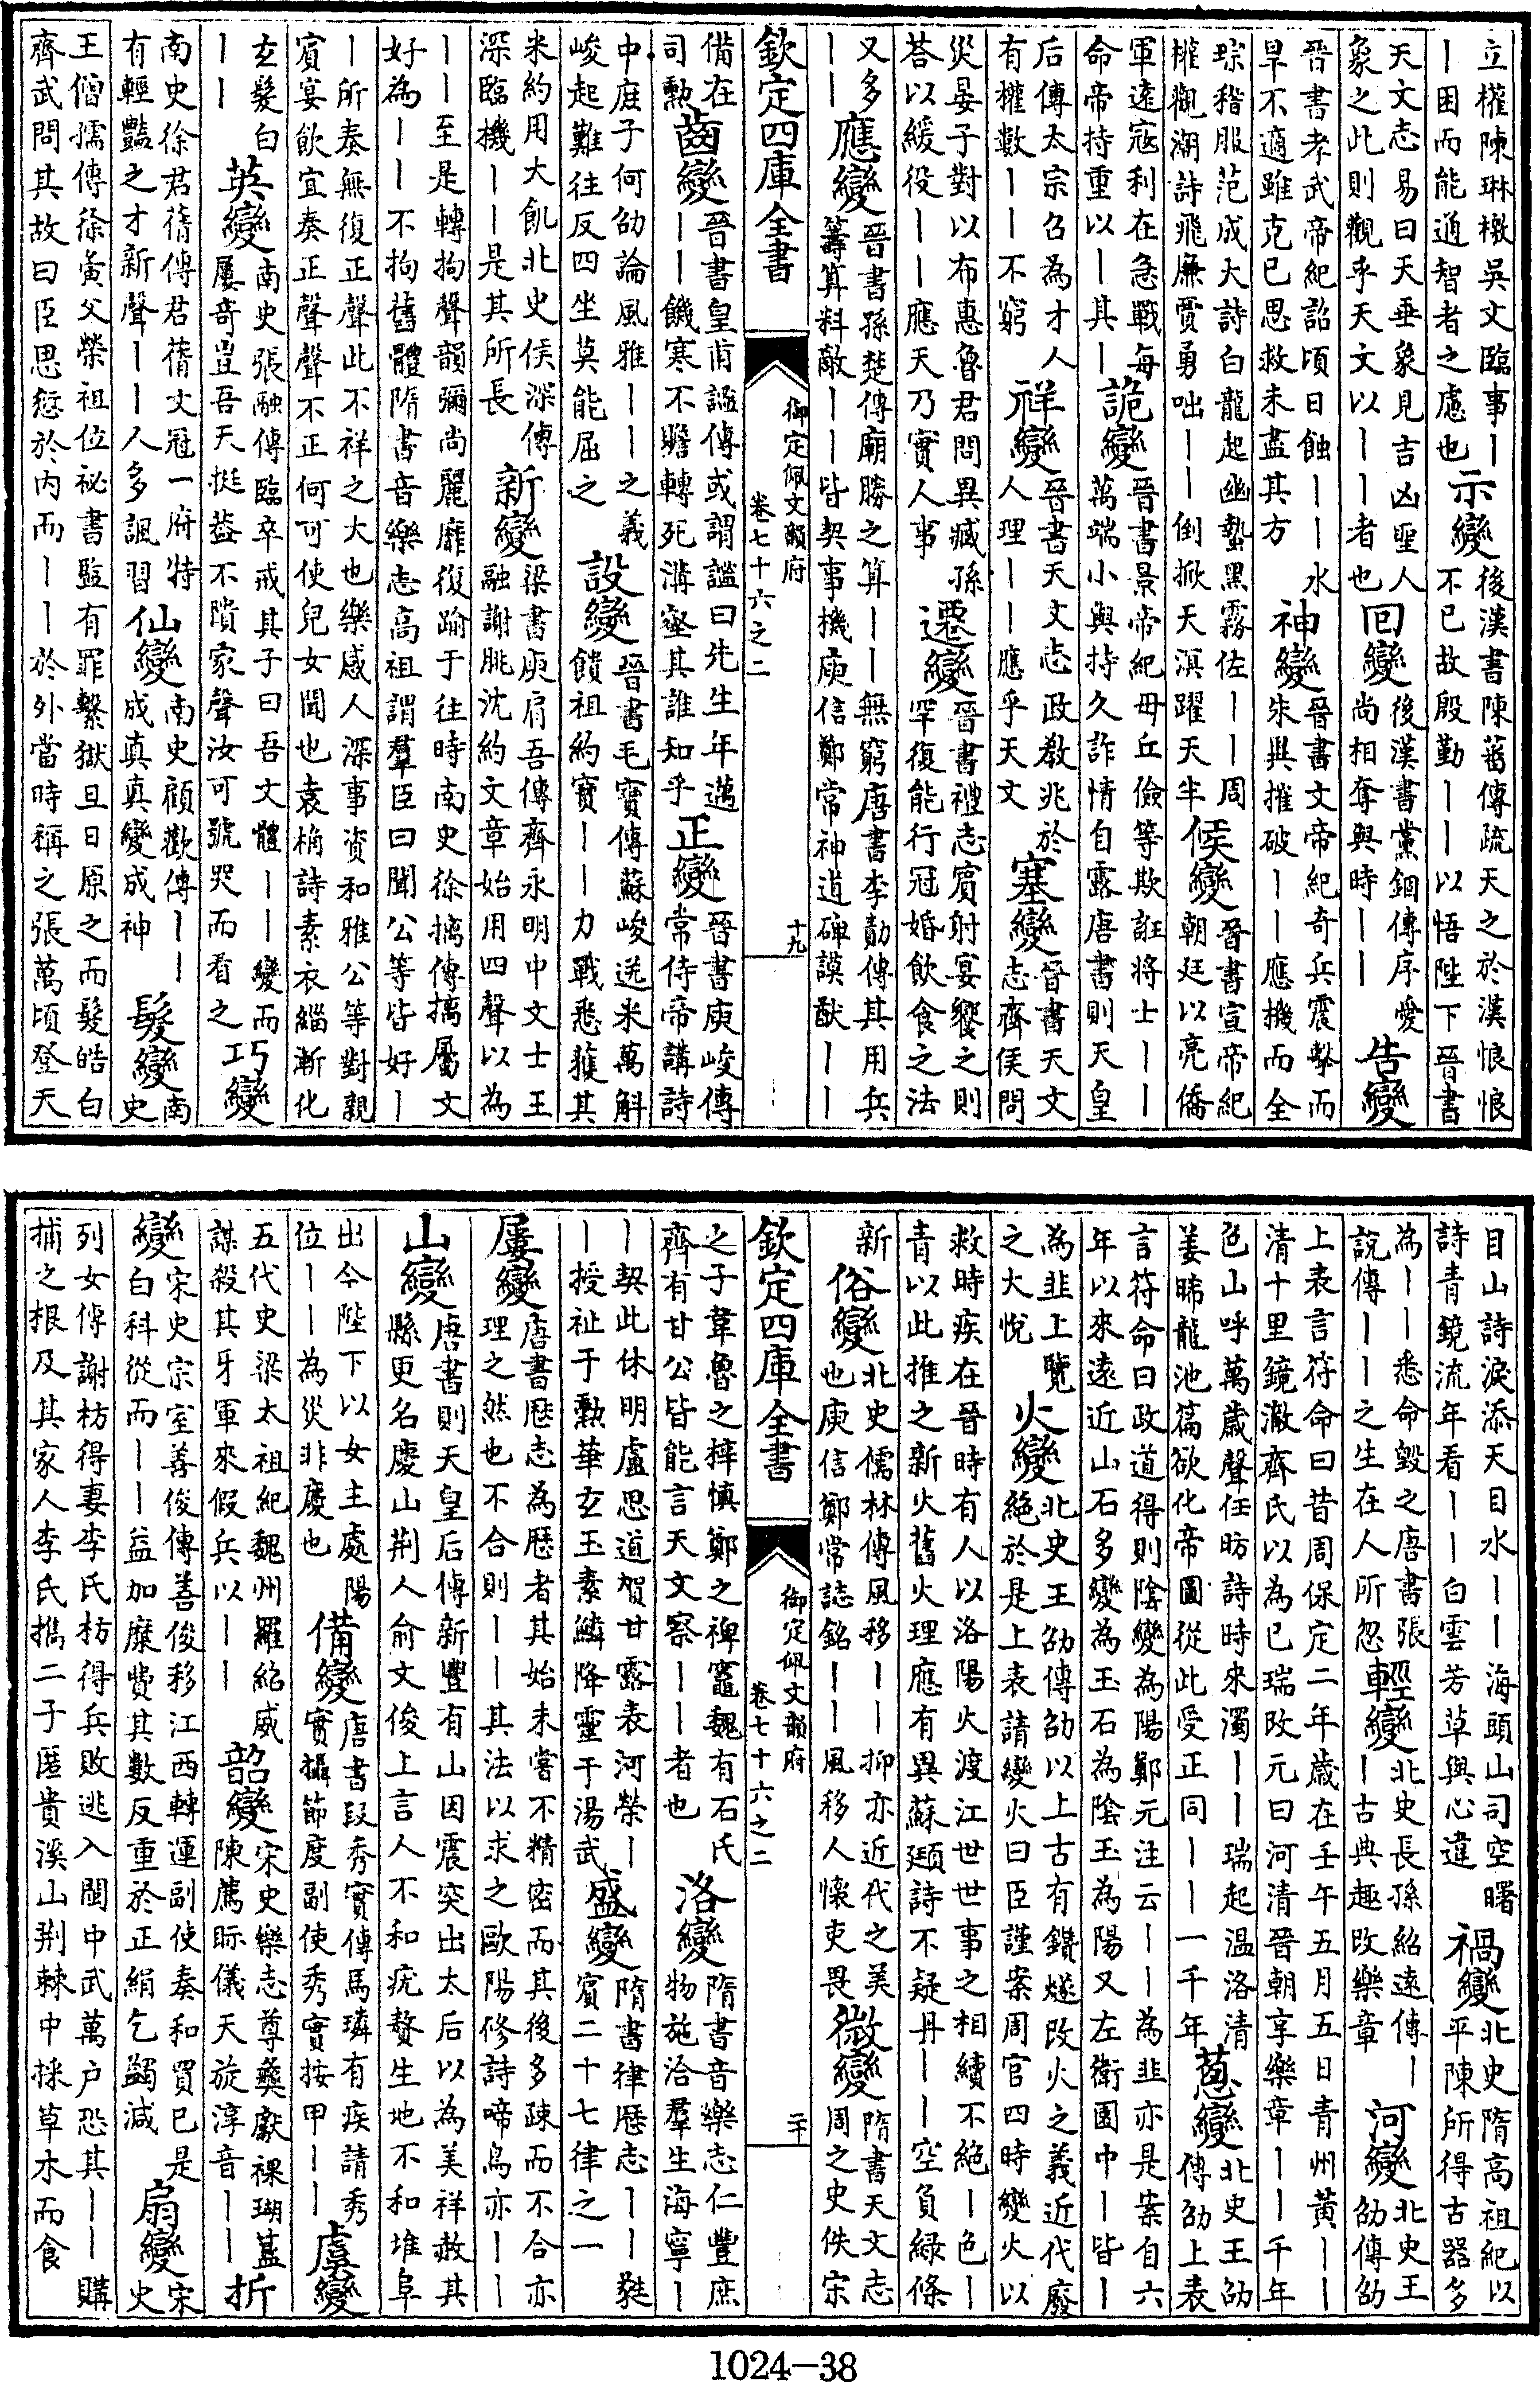 立權陳琳檄吳文臨事丨
丨困而能通智者之慮也
示變
後漢書陳蕃傳疏天之於漢悢悢
不已故殷勤丨丨以悟陛下晉書
天文志易曰天垂象見吉凶聖人
象之此則觀乎天文以丨丨者也
回變
後漢書黨錮傳序愛
尚相奪與時丨丨
告變
晉書孝武帝紀詔頃日蝕丨丨水
旱不適雖克已思救未盡其方
神變
晉書文帝紀奇兵震擊而
朱與摧破丨丨應機而全
琮稽服范成大詩白龍起幽蟄黑霧佐丨丨周
權觀潮詩飛廉賈勇咄丨丨倒掀天溟躍天半
候變
晉書宣帝紀
朝廷以亮僑
軍遠寇利在急戰每
命帝持重以丨其丨
詭變
晉書景帝紀毋丘儉等欺誑將士丨丨
萬端小與持久詐情自露唐書則天皇
后傳太宗召為才人
有權數丨丨不窮
祥變
晉書天文志政教兆於
人理丨丨應乎天文
塞變
晉書天文
志齊侯問
災晏子對以布惠魯君問異臧孫
荅以緩役丨丨應天乃實人事
遷變
晉書禮志賓射宴饗之則
罕復能行冠婚飲食之法
又多
丨丨
應變
晉書孫楚傳廟勝之算丨丨無窮唐書李勣傳其用兵
籌算料敵丨丨皆契事機庾信鄭常神道碑謨猷丨丨
欽定四庫全書
御定佩文韻府
卷七十六之二
十九
備在
司勳
齒變
晉書皇甫謐傳或謂謐曰先生年邁
丨丨饑寒不贍轉死溝壑其誰知乎
正變
晉書庾峻傳
常侍帝講詩
中庶子何劭論風雅丨丨之義
峻起難往反四坐莫能屈之
設變
晉書毛寶傳蘇峻送米萬斛
饋祖約寶丨丨力戰悉獲其
米約用大飢北史侯深傳
深臨機丨丨是其所長
新變
梁書庾肩吾傳齊永明中文士王
融謝朓沈約文章始用四聲以為
丨丨至是轉拘聲韻彌尚麗靡復踰于往時南史徐摛傳摛屬文
好為丨丨不拘舊體隋書音樂志高祖謂羣臣曰聞公等皆好丨
丨所奏無復正聲此不祥之大也樂感人深事资和雅公等對親
賓宴飲宜奏正聲聲不正何可使兒女聞也袁桷詩素衣緇漸化
玄髮白
丨丨
英變
南史張融傳臨卒戒其子曰吾文體丨丨變而
屢奇豈吾天挺蓋不隤家聲汝可號哭而看之
巧變
南史徐君蒨傳君蒨文冠一府特
有輕豔之才新聲丨丨人多諷習
仙變
南史顧歡傳丨丨
成真真變成神
髮變
南
史
王僧孺傳徐夤父榮祖位祕書監有罪繫獄旦日原之而髮皓白
齊武問其故曰臣思愆於內而丨丨於外當時稱之張萬頃登天
目山詩淚添天目水丨丨海頭山司空曙
詩青鏡流年看丨丨白雲芳草與心違
禍變
北史隋高祖紀以
平陳所得古器多
為丨丨悉命毀之唐書張
說傳丨丨之生在人所忽
輕變
北史長孫紹遠傳丨
丨古典趣改樂章
河變
北史王
劭傳劭
上表言符命曰昔周保定二年歲在壬午五月五日青州黃丨丨
清十里鏡澈齊氏以為已瑞改元曰河清晉朝享樂章丨丨千年
色山呼萬歲聲任昉詩時來濁丨丨瑞起温洛清
姜晞龍池篇欲化帝圖從此受正同丨丨一千年
葱變
北史王劭
傳劭上表
言符命曰政道得則陰變為陽鄭元注云丨丨為韭亦是案自六
年以來遠近山石多變為玉石為陰玉為陽又左衛園中丨皆丨
為韭上覽
之大悅
火變
北史王劭傳劭以上古有鑽燧改火之義近代廢
絕於是上表請變火曰臣謹案周官四時變火以
救時疾在晉時有人以洛陽火渡江世世事之相續不絕丨色丨
青以此推之新火舊火理應有異蘇頲詩不疑丹丨丨空負緑條
新
俗變
北史儒林傳風移丨丨抑亦近代之美
也庾信鄭常誌銘丨丨風移人懷吏畏
微變
隋書天文志
周之史佚宋
欽定四庫全書
御定佩文韻府
卷七十六之二
二十
之子韋魯之梓慎鄭之裨竈魏有石氏
齊有甘公皆能言天文察丨丨者也
洛變
隋書音樂志仁豐庶
物施洽羣生海寧丨
丨契此休明盧思道賀甘露表河榮丨
丨授祉于勳華玄玉素鱗降靈于湯武
盛變
隋書律厯志丨丨蕤
賓二十七律之一
屢變
唐書厯志為厯者其始未嘗不精密而其後多疎而不合亦
理之然也不合則丨丨其法以求之歐陽修詩啼鳥亦丨丨
山變
唐書則天皇后傳新豐有山因震突出太后以為美祥赦其
縣更名慶山荆人俞文俊上言人不和疣贅生地不和堆阜
出今陛下以女主處陽
位丨丨為災非慶也
備變
唐書段秀實傳馬璘有疾請秀
實攝節度副使秀實按甲丨丨
虞變
五代史梁太祖紀魏州羅紹威
謀殺其牙軍來假兵以丨丨
韶變
宋史樂志尊彝獻祼瑚簋
陳薦眎儀天旋淳音丨丨
折
變
宋史宗室善俊傳善俊移江西轉運副使奏和買已是
白科從而丨丨益加糜費其數反重於正絹乞蠲減
扇變
宋
史
列女傳謝枋得妻李氏枋得兵敗逃入閩中武萬戶恐其丨丨購
捕之根及其家人李氏攜二子匿貴溪山荆棘中採草木而食
1024-38